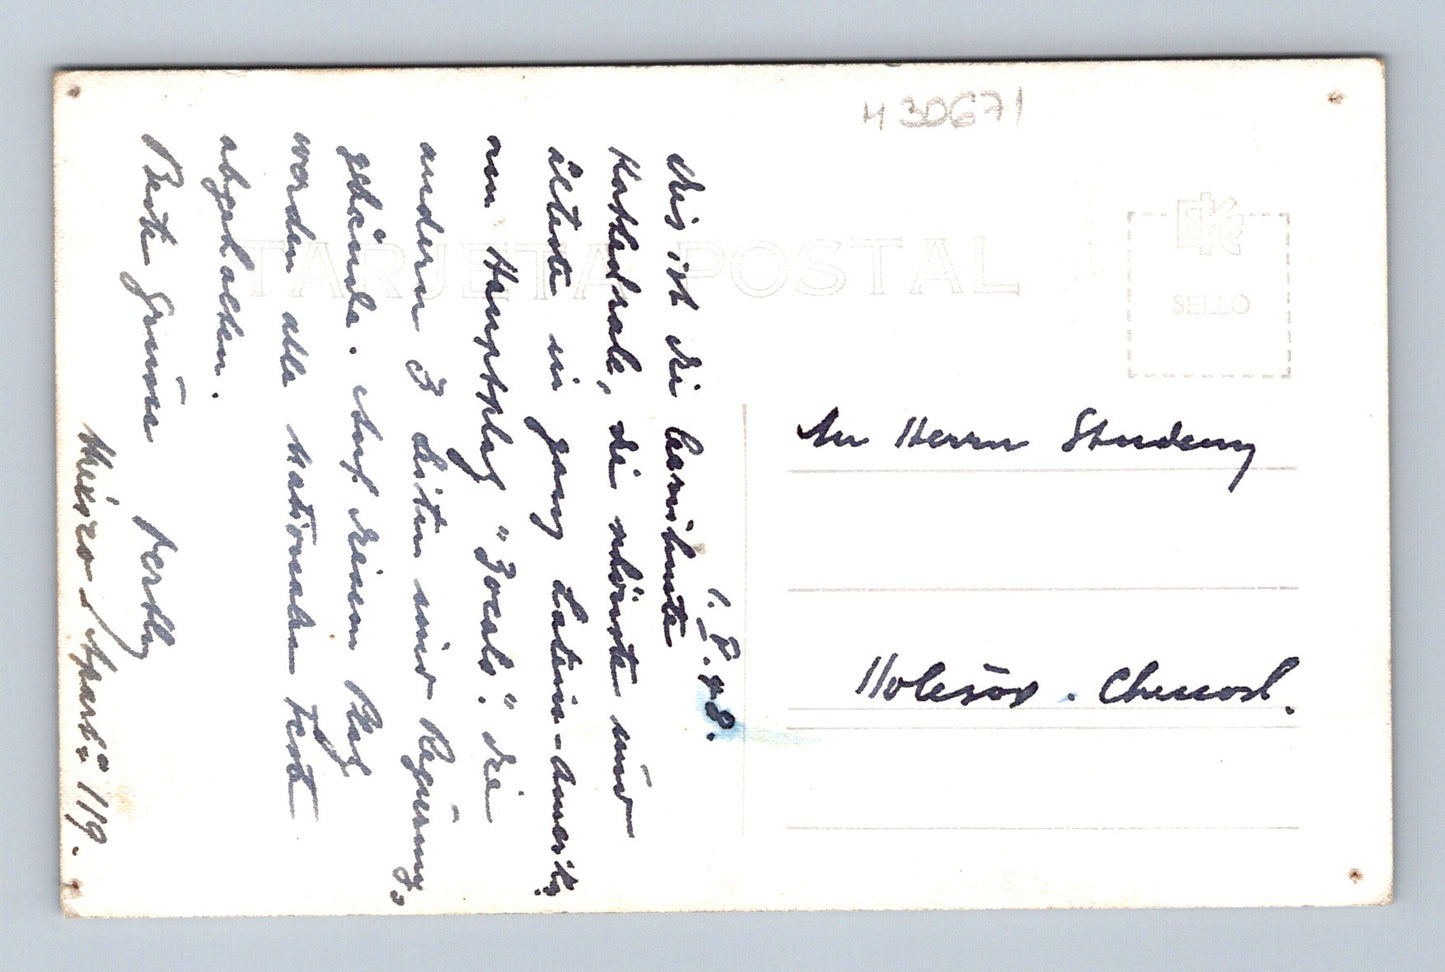 H 30671
TARJETA POSTAL
EKC
SELLO
1. 8. 48.
Dies ist die berühmte
Kathedrale, die schönste und
älteste in ganz Latein-Amerika,
am Hauptplatz "Zocalo". Die
andern 3 Seiten sind Regierungs-
gebäude. Auf diesem Platz
werden alle Nationalen Feste
abgehalten.
Beste Grüsse
México, Apart. 119.
An Herrn Studeny
Holešov.